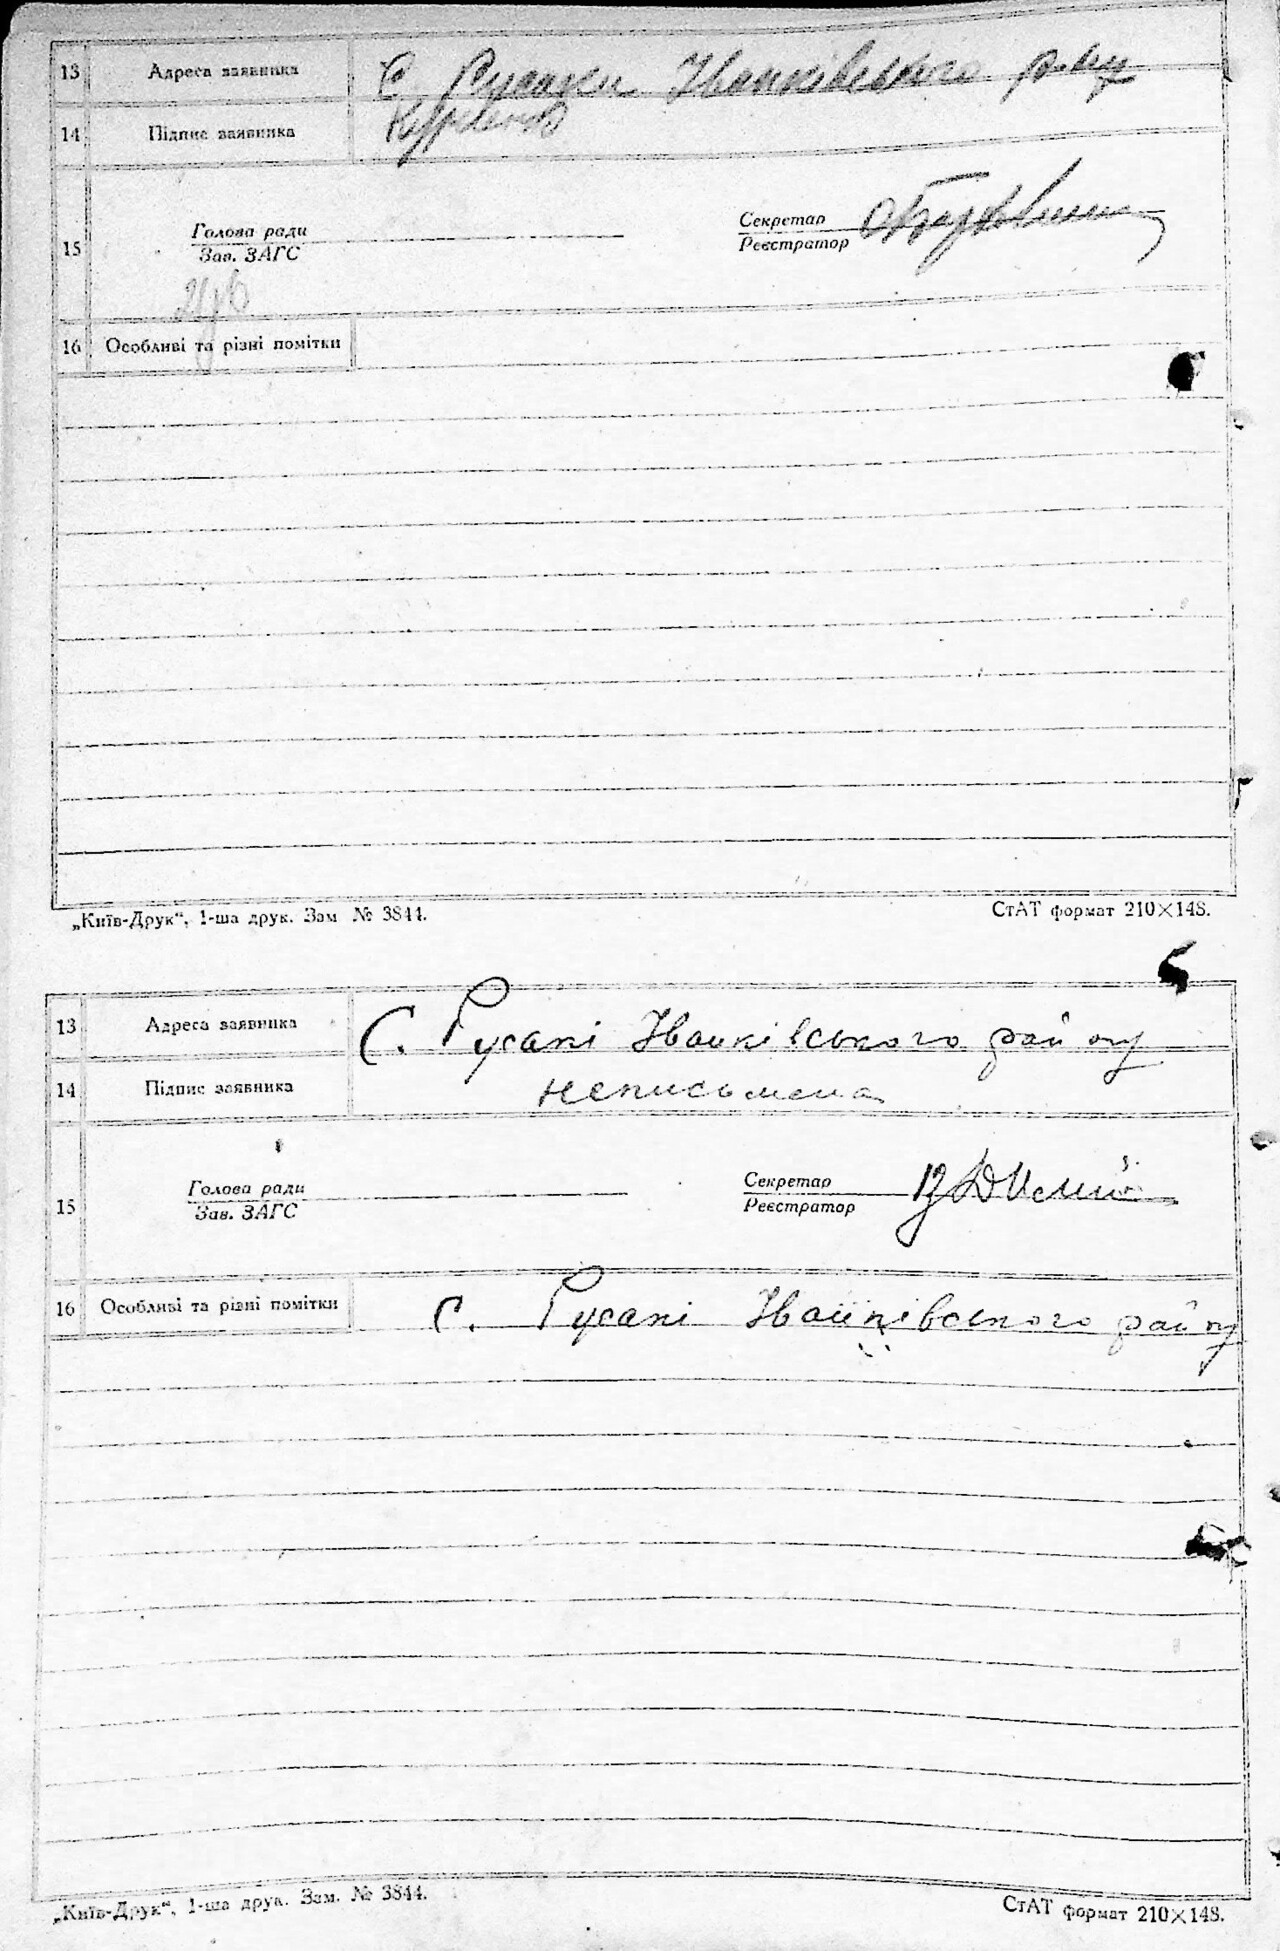 13 Адреса заявника С Русаки Іванківського р-ну
14 Підпис заявника
15 Голова ради Секретар
Зав. ЗАГС Реєстратор
16 Особливі та різні помітки
„Київ-Друк“, 1-ша друк. Зам № 3844. СтАТ формат 210×148.
13 Адреса заявника С. Русакі Іванківського району
14 Підпис заявника неписьмена
15 Голова ради Секретар
Зав. ЗАГС Реєстратор
16 Особливі та різні помітки с. Русакі Іванківського району
„Київ-Друк“, 1-ша друк. Зам. № 3844. СтАТ формат 210×148.